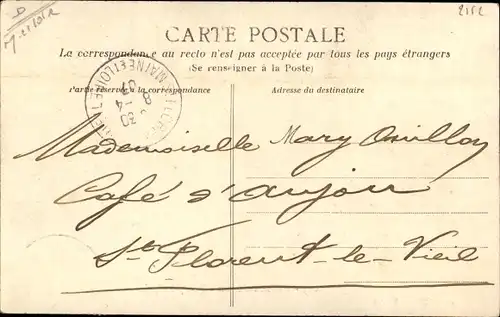 2152
CARTE POSTALE
La correspondance au recto n'est pas acceptée par tous les pays étrangers
(Se renseigner à la Poste)
Partie réservée à la correspondance
Adresse du destinataire
MAINE ET LOIRE
8 -4
30
Mademoiselle Mary
Café d'Anjou
St Florent-le-Vieil